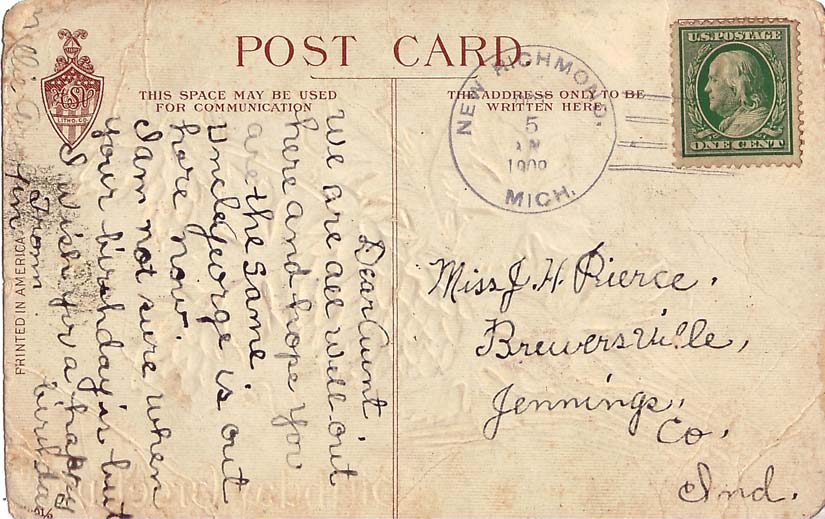 POST CARD.
THIS SPACE MAY BE USED
FOR COMMUNICATION
THE ADDRESS ONLY TO BE
WRITTEN HERE
U.S. POSTAGE
ONE CENT
NEW RICHMOND,
5
1909
MICH.
LITHO. CO.
PRINTED IN AMERICA
Dear Aunt,
We are all well out
here and hope you
are the same.
Uncle George is out
here now.
I am not sure when
your birthday is but
I wish for a happy
birthday
From
Miss J. H. Pierce.
Brewersville,
Jennings,
Co.
Ind.